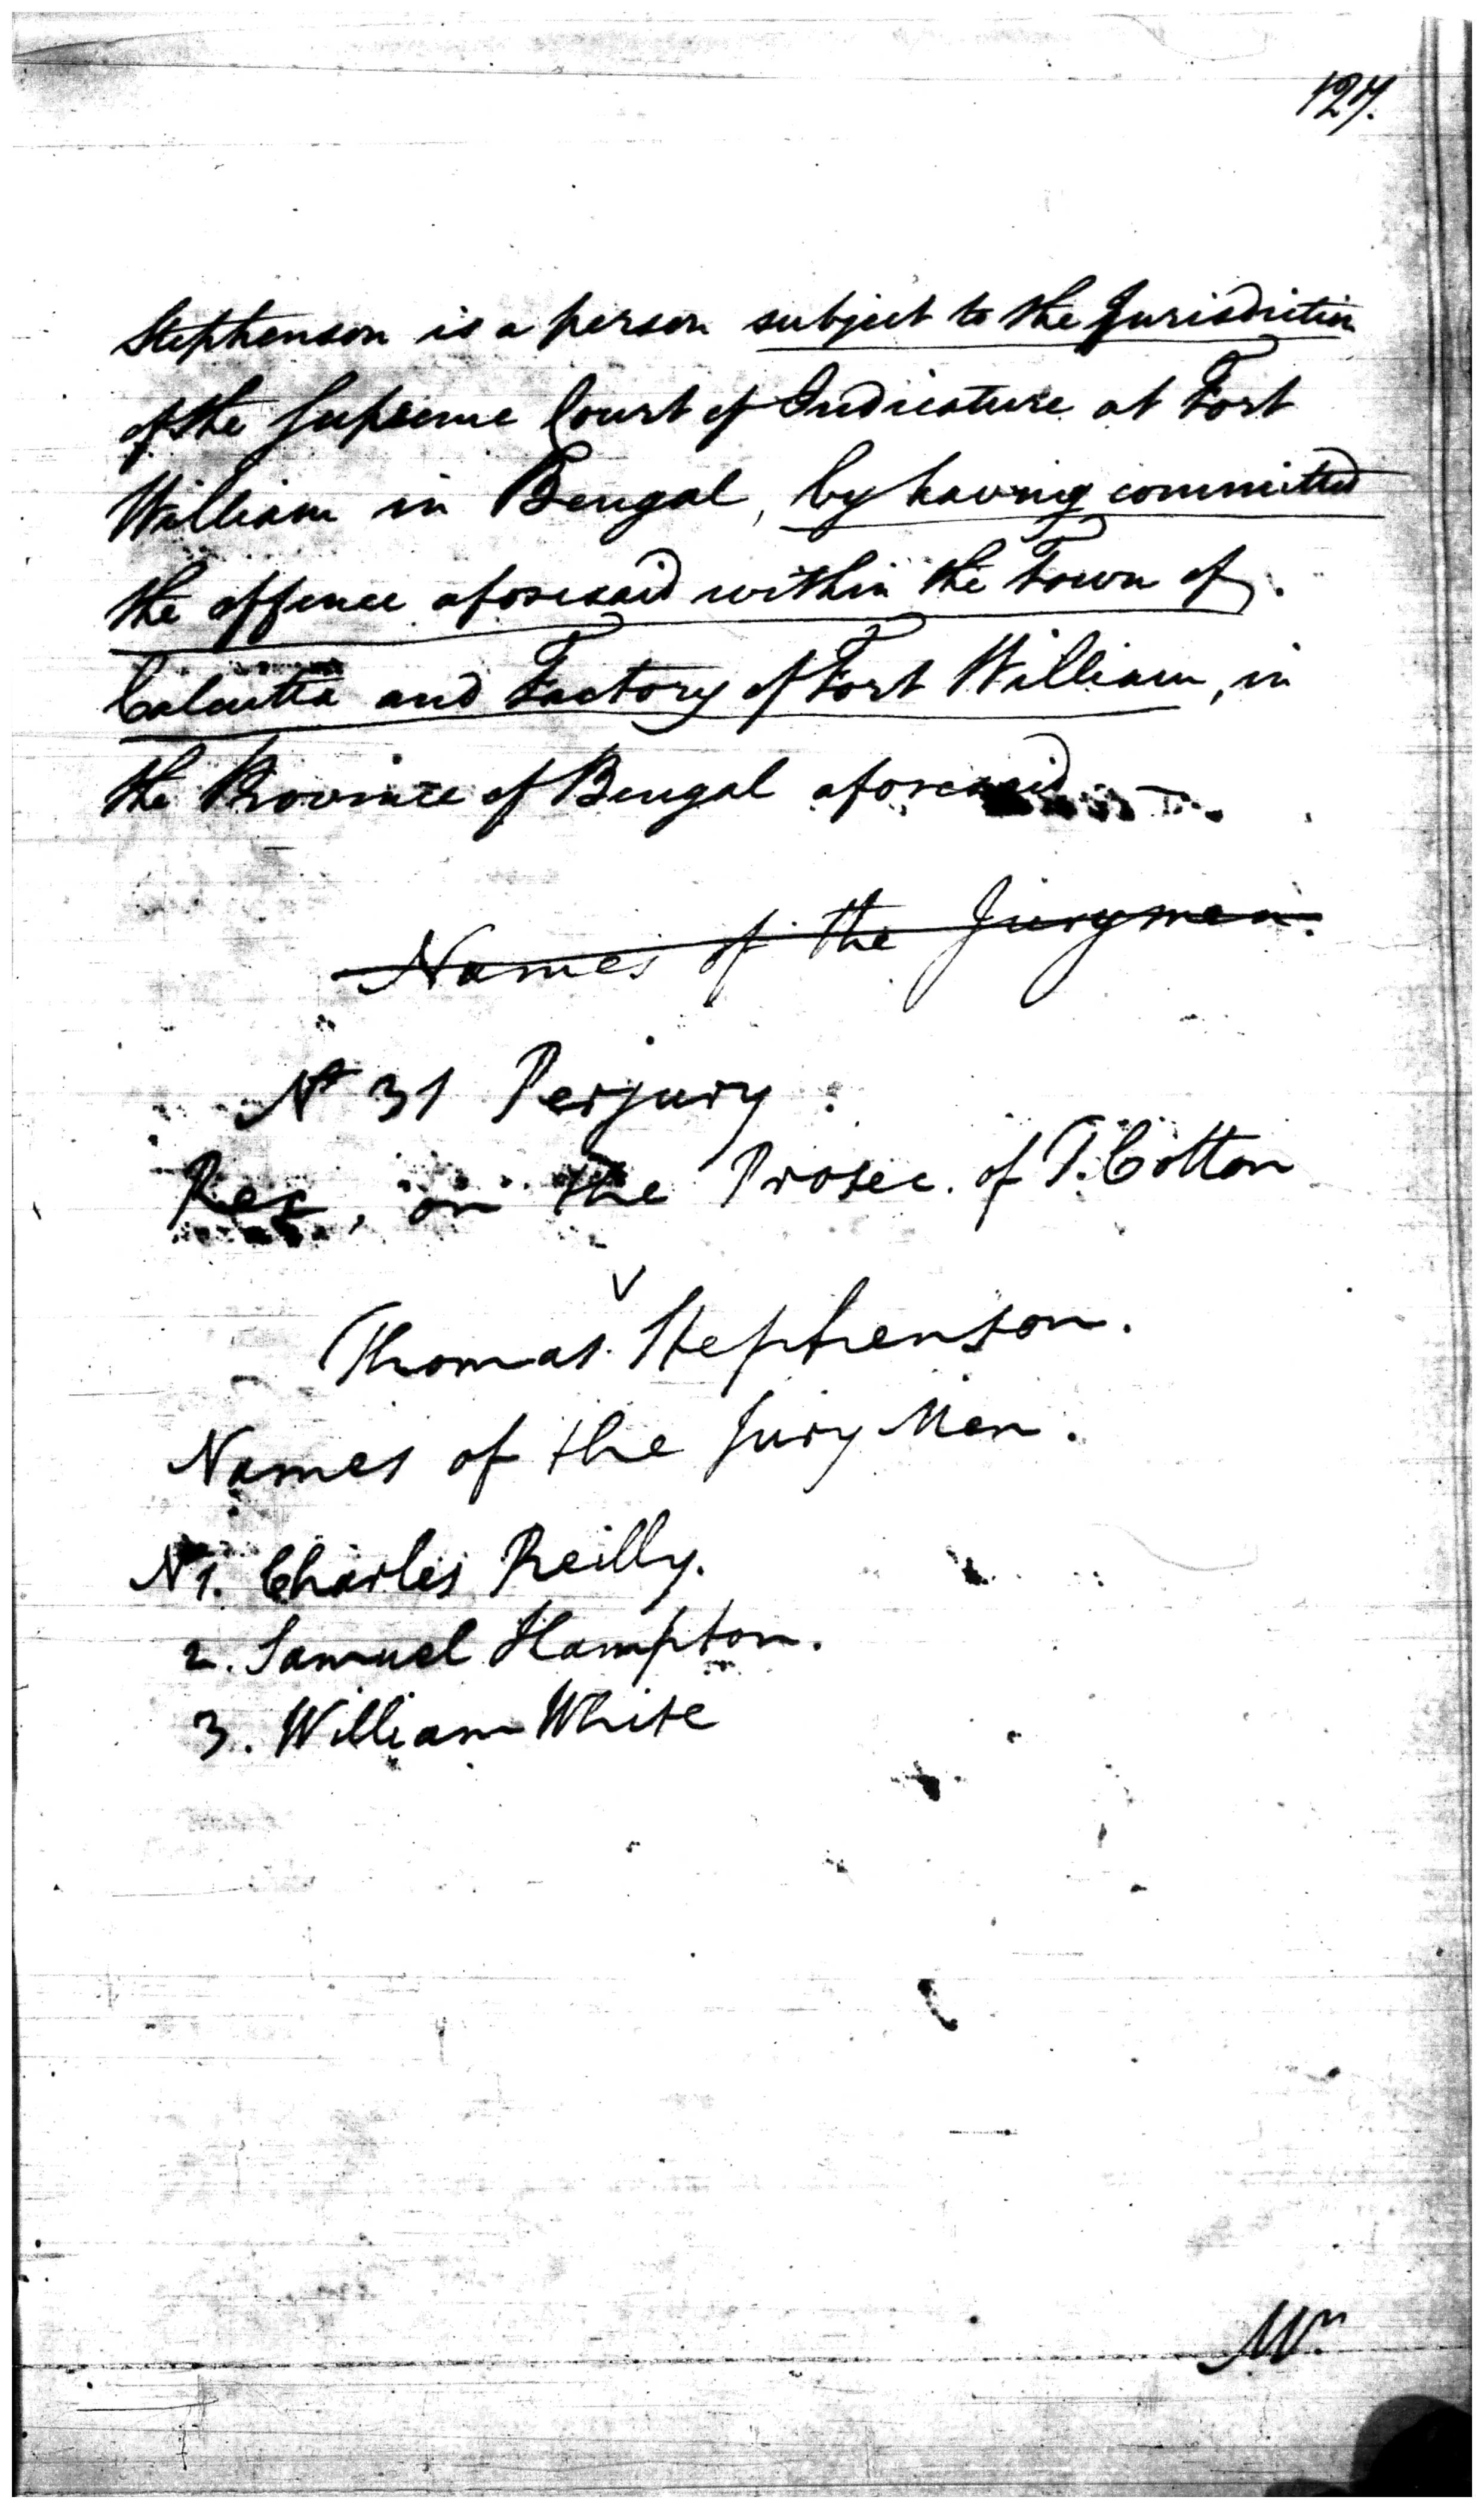 127.
Stephenson is a person subject to the Jurisdiction
of the Supreme Court of Judicature at Fort
William in Bengal, by having committed
the offence aforesaid within the Town of
Calcutta and Factory of Fort William, in
the Province of Bengal aforesaid
Names of the Jurymen.
No 31 Perjury.
Rex, on the Prosec. of T. Cotton
v
Thomas Stephenson.
Names of the Jury Men.
N 1. Charles Reilly.
2. Samuel Hampton.
3. William White